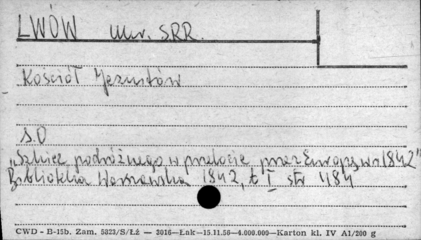 LWÓW Ukr. SRR.
Kościół Jezuitów
S.O
"Szkice podróżnego w przelocie przez Europę w r. 1842"
Biblioteka Warszawska 1842, t I str 484
CWD - B-15b. Zam. 5823/S/Łż — 3016—Łak—15.11.56—4.000.000—Karton kl. IV A1/200 g